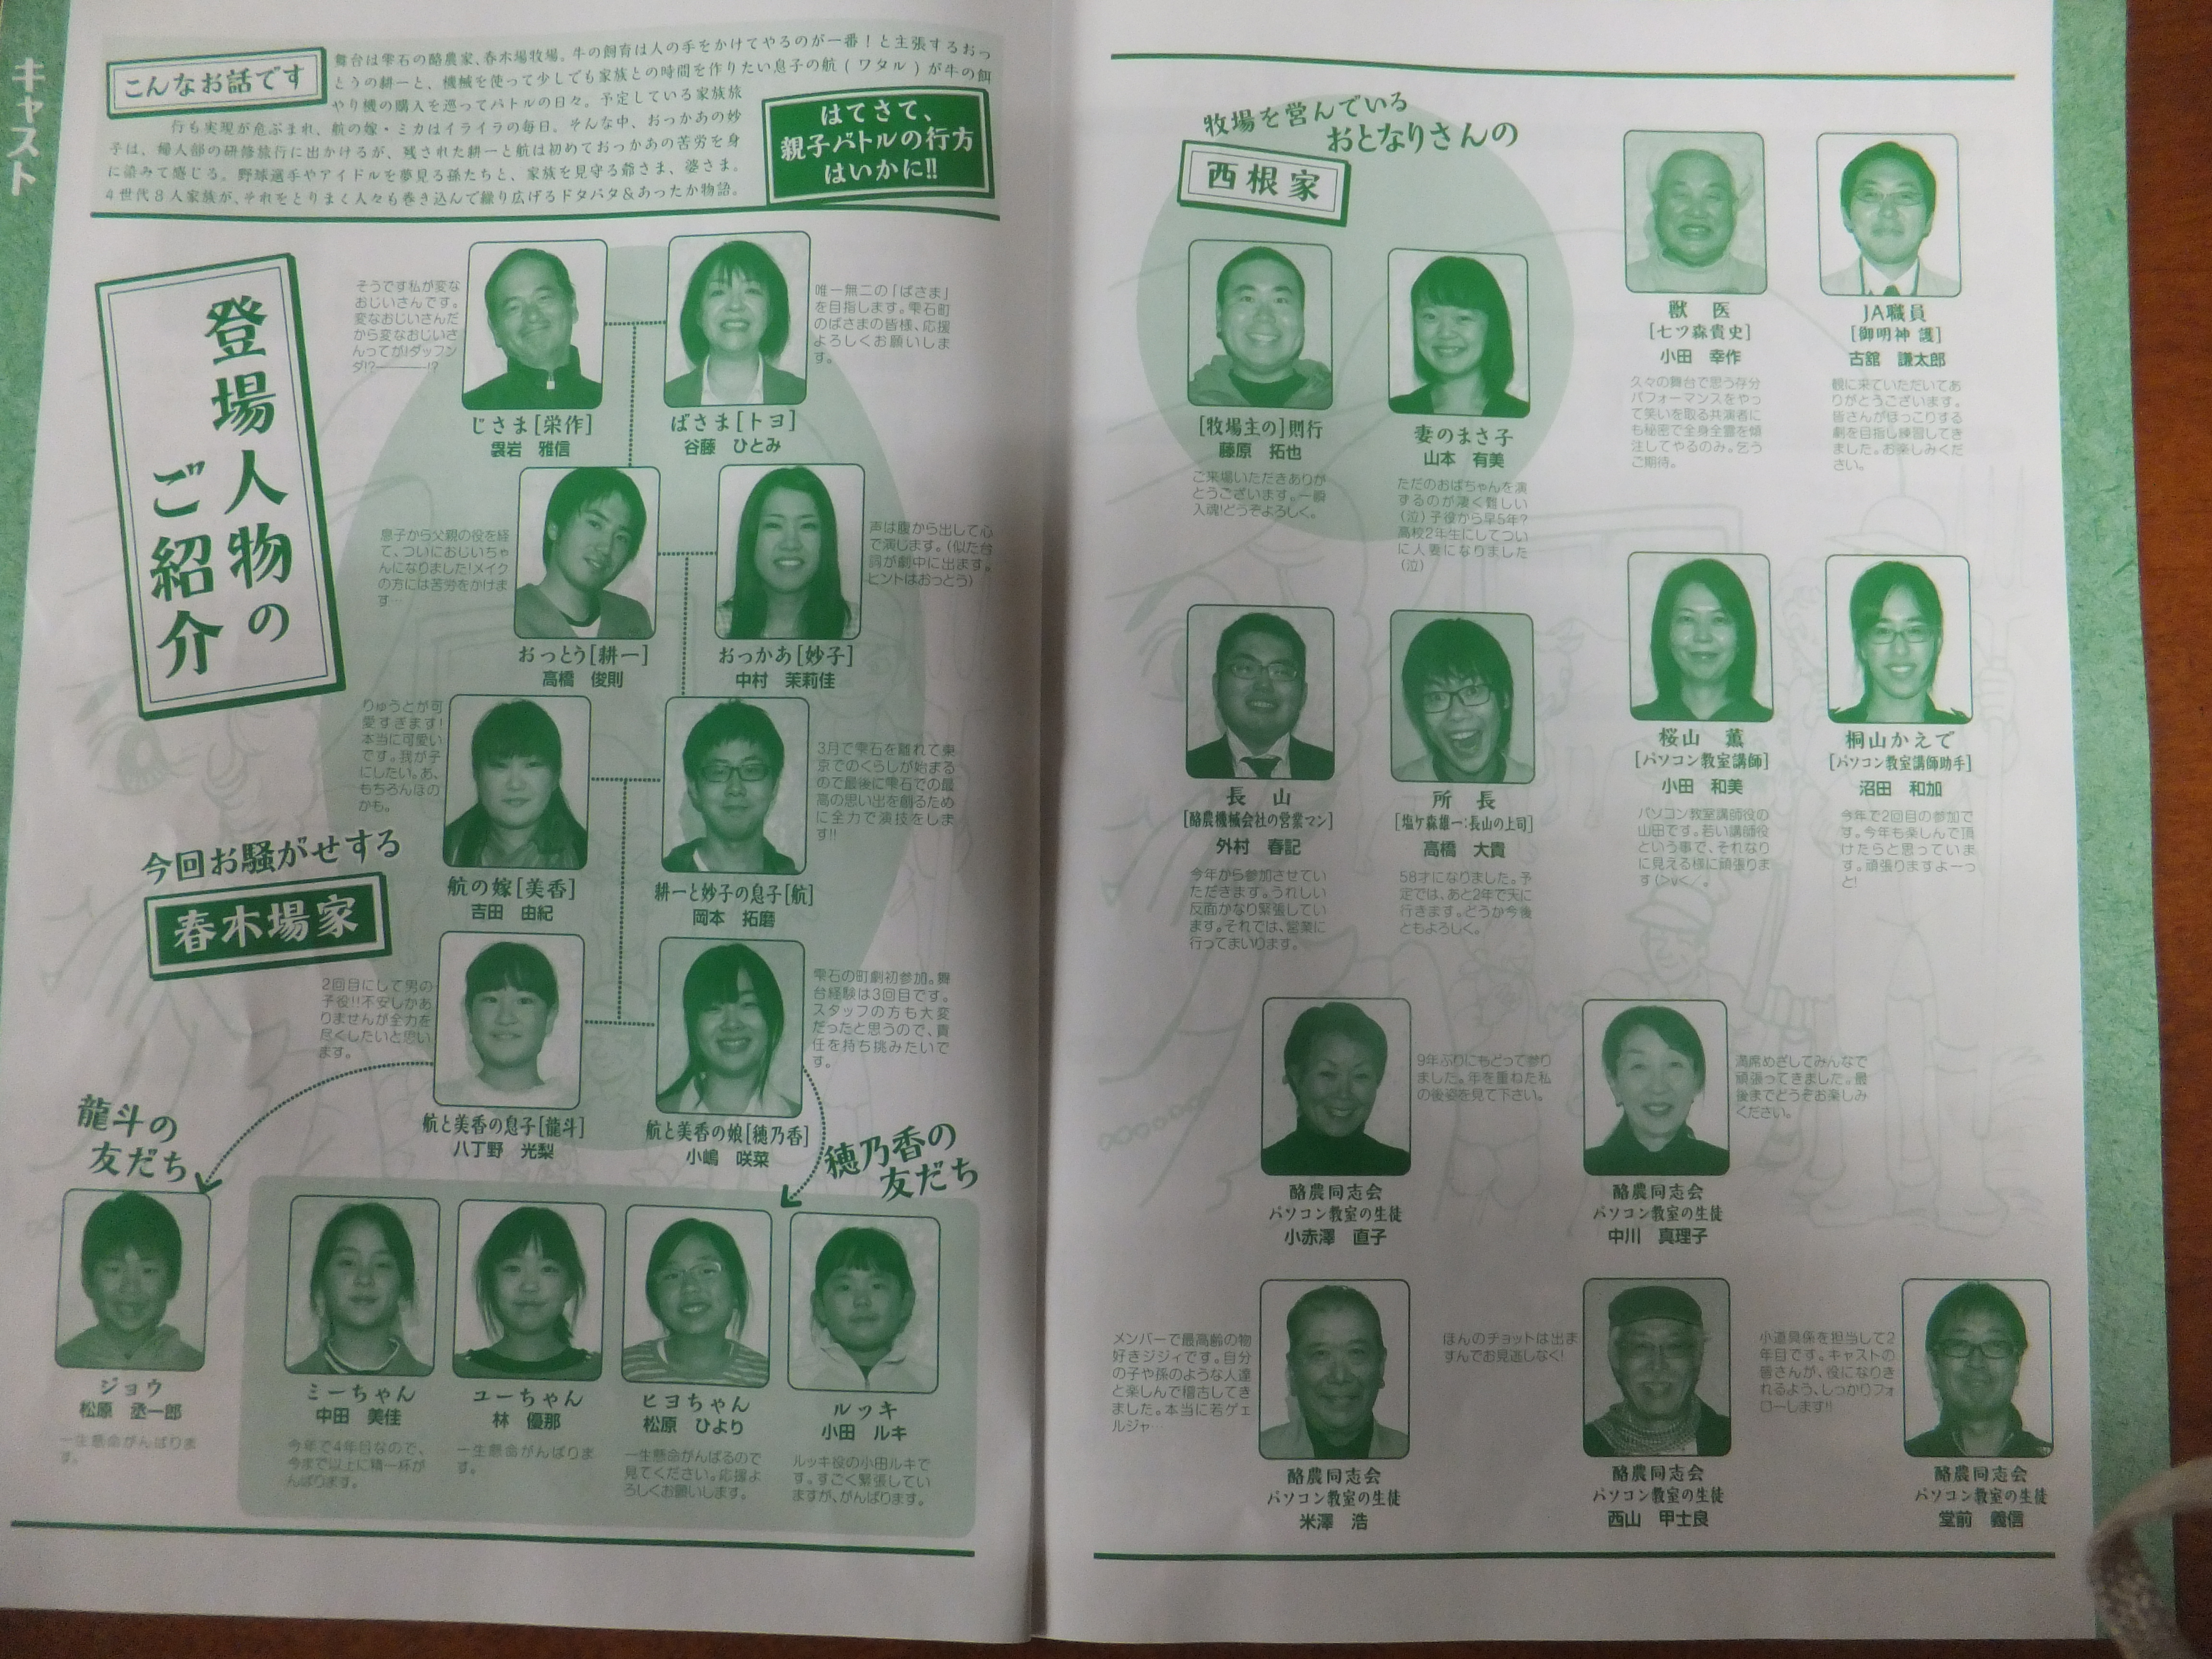 キャスト
こんなお話です
舞台は雫石の酪農家、春木場牧場。牛の飼育は人の手をかけてやるのが一番！と主張するおっ
とうの耕一と、機械を使って少しでも家族との時間を作りたい息子の航(ワタル)が牛の餌
やり機の購入を巡ってバトルの日々。予定している家族旅
行も実現が危ぶまれ、航の嫁・ミカはイライラの毎日。そんな中、おっかあの妙
子は、婦人部の研修旅行に出かけるが、残された耕一と航は初めておっかあの苦労を身
に染みて感じる。野球選手やアイドルを夢見る孫たちと、家族を見守る爺さま、婆さま。
4世代8人家族が、それをとりまく人々も巻き込んで繰り広げるドタバタ&あったか物語。
はてさて、
親子バトルの行方
はいかに!!
登場人物の
ご紹介
そうです私が変な
おじいさんです。
変なおじいさんだ
から変なおじいさ
んってが!ダッフン
ダ!?————!?
じさま[栄作]
袰岩 雅信
ばさま[トヨ]
谷藤 ひとみ
唯一無二の「ばさま」
を目指します。雫石町
のばさまの皆様、応援
よろしくお願いしま
す。
息子から父親の役を経
て、ついにおじいちゃ
んになりました!メイク
の方には苦労をかけま
す…
おっとう[耕一]
高橋 俊則
おっかあ[妙子]
中村 茉莉佳
声は腹から出して心
で演じます。(似た台
詞が劇中に出ます。
ヒントはおっとう)
りゅうとが可
愛すぎます!
本当に可愛い
です。我が子
にしたい。あ、
もちろんほの
かも。
航の嫁[美香]
吉田 由紀
耕一と妙子の息子[航]
岡本 拓磨
3月で雫石を離れて東
京でのくらしが始まる
ので最後に雫石での最
高の思い出を創るため
に全力で演技をしま
す!!
今回お騒がせする
春木場家
2回目にして男の
子役!!不安しかあ
りませんが全力を
尽くしたいと思い
ます。
航と美香の息子[龍斗]
八丁野 光梨
航と美香の娘[穂乃香]
小嶋 咲菜
雫石の町劇初参加。舞
台経験は3回目です。
スタッフの方も大変
だったと思うので、責
任を持ち挑みたいで
す。
龍斗の
友だち
穂乃香の
友だち
ジョウ
松原 丞一郎
一生懸命がんばりま
す。
ミーちゃん
中田 美佳
今年で4年目なので、
今まで以上に精一杯が
んばります。
ユーちゃん
林 優那
一生懸命がんばりま
す。
ヒヨちゃん
松原 ひより
一生懸命がんばるので
見てください。応援よ
ろしくお願いします。
ルッキ
小田 ルキ
ルッキ役の小田ルキで
す。すごく緊張してい
ますが、がんばります。
牧場を営んでいる
おとなりさんの
西根家
[牧場主の]則行
藤原 拓也
ご来場いただきありが
とうございます。一瞬
入魂!どうぞよろしく。
妻のまさ子
山本 有美
ただのおばちゃんを演
するのが凄く難しい
(泣)子役から早5年?
高校2年生にしてつい
に人妻になりました
(泣)
獣 医
[七ツ森貴史]
小田 幸作
久々の舞台で思う存分
パフォーマンスをやっ
て笑いを取る共演者に
も秘密で全身全霊を傾
注してやるのみ。乞う
ご期待。
JA職員
[御明神 護]
古舘 謙太郎
観に来ていただいてあ
りがとうございます。
皆さんがほっこりする
劇を目指し練習してき
ました。お楽しみくだ
さい。
長 山
[酪農機械会社の営業マン]
外村 春記
今年から参加させてい
ただきます。うれしい
反面かなり緊張してい
ます。それでは、営業に
行ってまいります。
所 長
[塩ケ森雄一:長山の上司]
高橋 大貴
58才になりました。予
定では、あと2年で天に
行きます。どうか今後
ともよろしく。
桜山 薫
[パソコン教室講師]
小田 和美
パソコン教室講師役の
山田です。若い講師役
という事で、それなり
に見える様に頑張りま
桐山かえで
[パソコン教室講師助手]
沼田 和加
今年で2回目の参加で
す。今年も楽しんで頂
けたらと思っていま
す。頑張りますよーっ
と!
酪農同志会
パソコン教室の生徒
小赤澤 直子
9年ぶりにもどって参り
ました。年を重ねた私
の後姿を見て下さい。
酪農同志会
パソコン教室の生徒
中川 真理子
満席めざしてみんなで
頑張ってきました。最
後までどうぞお楽しみ
ください。
メンバーで最高齢の物
好きジジィです。自分
の子や孫のような人達
と楽しんで稽古してき
ました。本当に若ゲェ
ルジャ…
酪農同志会
パソコン教室の生徒
米澤 浩
ほんのチョットは出ま
すんでお見逃しなく!
酪農同志会
パソコン教室の生徒
西山 甲士良
小道具係を担当して2
年目です。キャストの
皆さんが、役になりき
れるよう、しっかりフォ
ローします!!
酪農同志会
パソコン教室の生徒
堂前 義信